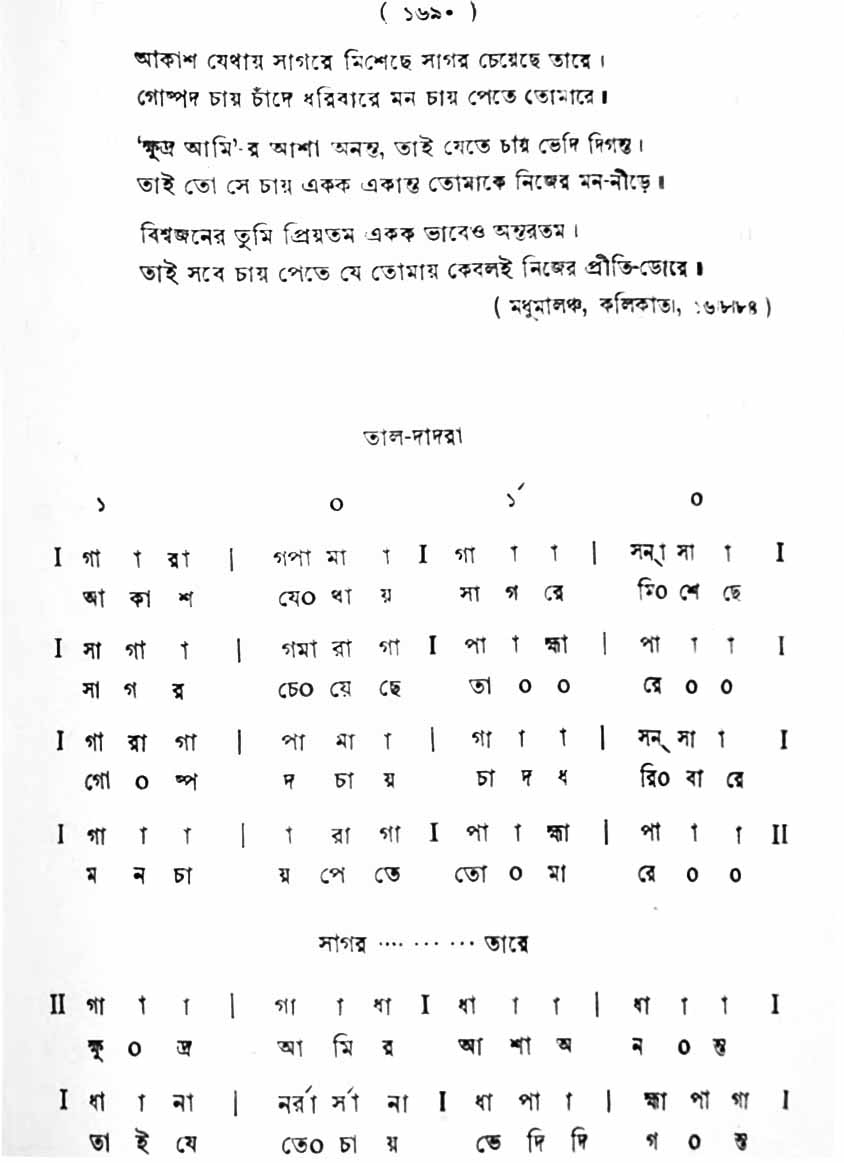 ( ১৬৯০ )
আকাশ যেথায় সাগরে মিশেছে সাগর চেয়েছে তারে ।
গোষ্পদ চায় চাঁদে ধরিবারে মন চায় পেতে তোমারে ॥
‘ক্ষুদ্র আমি’-র আশা অনন্ত, তাই যেতে চায় ভেদি দিগন্ত ।
তাই তো সে চায় একক একান্ত তোমাকে নিজের মন-নীড়ে ॥
বিশ্বজনের তুমি প্রিয়তম একক ভাবেও অন্তরতম ।
তাই সবে চায় পেতে যে তোমায় কেবলই নিজের প্রীতি-ডোরে ॥
( মধুমালঞ্চ, কলিকাতা, ১৬/৮/৮৪ )
তাল-দাদরা
১ ০ ১´ ০
I গা া রা | গপা মা া I গা া া | সন্া সা া I
আ কা শ যে০ থা য় সা গ রে মি০ শে ছে
I সা গা া | গমা রা গা I পা া হ্মা | পা া া I
সা গ র চে০ য়ে ছে তা ০ ০ রে ০ ০
I গা রা গা | পা মা া | গা া া | সন্ সা া I
গো ০ ষ্প দ চা য় চা দ ধ রি০ বা রে
I গা া া | া রা গা I পা া হ্মা | পা া া II
ম ন চা য় পে তে তো ০ মা রে ০ ০
সাগর ···· ··· ··· তারে
II গা া া | গা া ধা I ধা া া | ধা া া I
ক্ষু ০ দ্র আ মি র আ শা অ ন ০ ন্ত
I ধা া না | নর্রা র্সা না I ধা পা া | হ্মা পা গা I
তা ই যে তে০ চা য় ভে দি দি গ ০ ন্ত